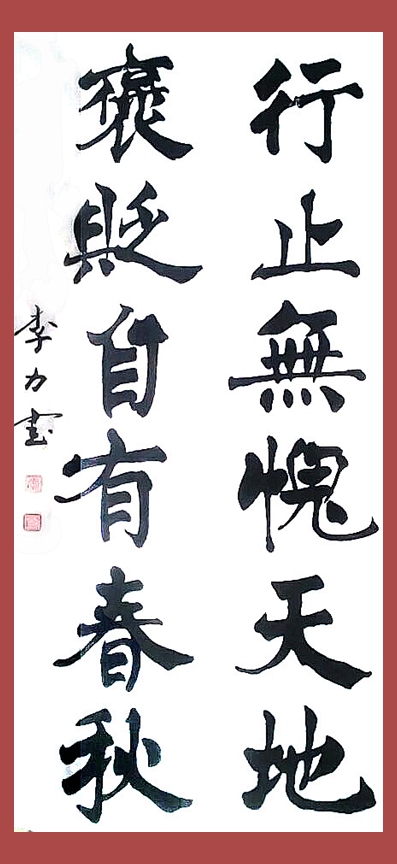 行止無愧天地
褒貶自有春秋
李力书